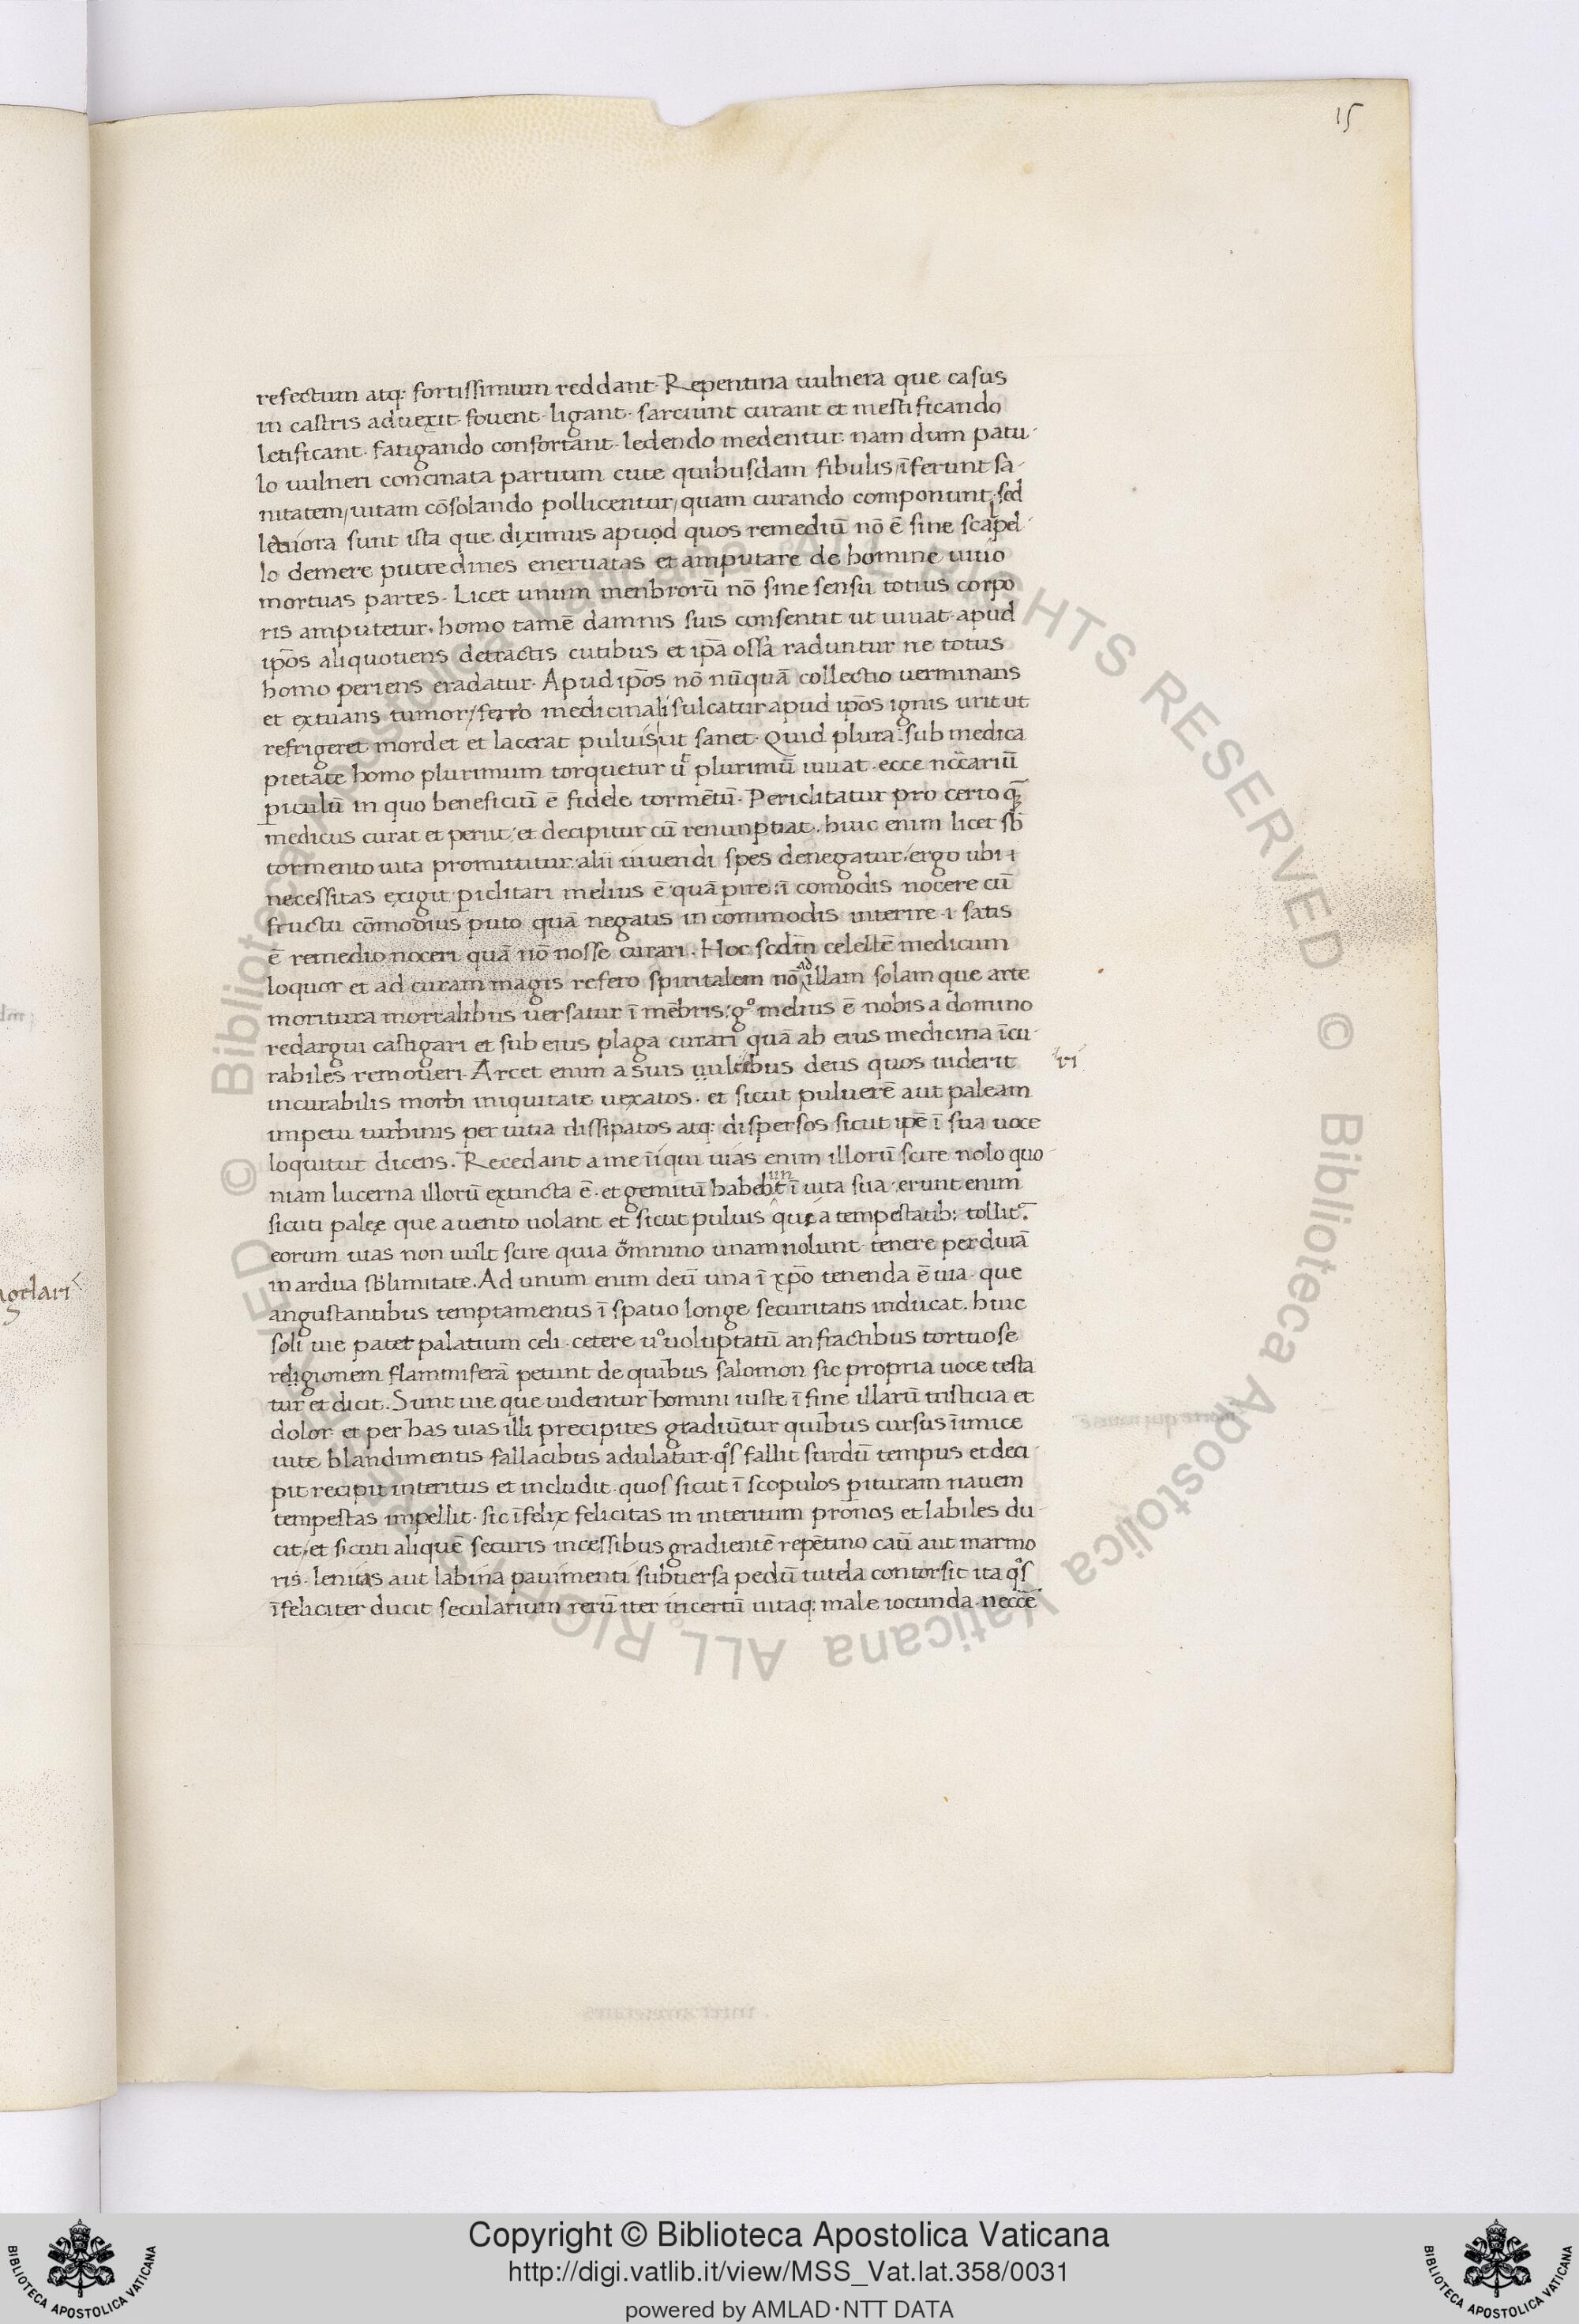 15
refectum atq: fortissimum reddant. Repentina uulnera que casus
in castris aduexit. fouent. ligant. sarciunt curant et mestificando
letificant. fatigando confortant. ledendo medentur. nam dum patu-
lo uulneri concinata partium cute quibusdam fibulis/ īferunt sa-
nitatem/ uitam cōsolando pollicentur/ quam curando componunt. sed
leuiora sunt ista que diximus apuod quos remediū nō ē sine scapel-
lo demere putredines eneruatas et amputare de homine uiuo
mortuas partes. Licet unum menbrorū nō sine sensu totius corpo
ris amputetur. homo tamē damnis suis consentit ut uiuat. apud
ip̄os aliquotiens detractis cutibus et ip̄a ossa raduntur ne totus
homo periens eradatur. Apud ip̄os nō nūquā collectio uerminans
et extuans tumor/ ferro medicinali sulcatur apud ip̄os ignis urit ut
refrigeret mordet et lacerat puluis ut sanet. Quid plura. sub medica
pietate homo plurimum torquetur plurimū uiuat. ecce nc̄cariū
piculū in quo beneficiū ē fidele tormētū. Periclitatur pro certo
medicus curat et perit: et decipitur cū renunptiat. huic enim licet sb̄
tormento uita promittitur. alii uiuendi spes denegatur. ergo ubi
necessitas exigit piclitari melius ē quā pire. ī comodis nocere cū
fructu cōmodius puto quā negatis in commodis interire. satis
ē remedio noceri quā nō nosse curari. Hoc scdm̄ celestē medicum
loquor et ad curam magis refero spiritalem nō ad illam solam que arte
moritura mortalibus uersatur ī mēbris. gº melius ē nobis a domino
redargui castigari et sub eius plaga curari quā ab eius medicina īcu-
rabiles remoueri. Arcet enim a suis deus quos uiderit
ri
incurabilis morbi iniquitate uexatos. et sicut puluerē aut paleam
impetu turbinis per uitia dissipatos atq: dispersos sicut ip̄e ī sua uoce
loquitur dicens. Recedant a me iīqui uias enim illorū scire nolo quo-
niam lucerna illorū extincta ē. et gemitū ī uita sua. erunt enim
sicuti palex que a uento uolant et sicut puluis que a tempestatib: tollit.
eorum uias non uult scire quia omnino unam nolunt. tenere per duiā
in ardua sb̄limitate. Ad unum enim deū una ī xp̄o tenenda ē uia. que
angustantibus temptamentis ī spatio longe securitatis inducat. huic
soli uie patet palatium celi. cetere uº uoluptatū anfractibus tortuose
religionem flammiferā petunt de quibus salomon sic propria uoce testa
tur et dicit. Sunt uie que uidentur homini iuste ī fine illarū tristicia et
dolor. et per has uias illi precipites gradiūtur quibus cursus īimice
uite blandimentis fallacibus adulatur. qºs fallit surdū tempus et deci-
pit recipit interitus et includit. quos sicut ī scopulos pituram nauem
tempestas impellit. sic īfelix felicitas in interitum pronos et labiles du-
cit/ et sicuti aliquē securis incessibus gradientē repētino caū aut marmo
ris. leuitas aut labina pauimenti subuersa pedū tutela contorsit ita qºs
īfeliciter ducit secularium rerū iter incertū uitaq: male iocunda. necc̄ē
Copyright © Biblioteca Apostolica Vaticana
http://digi.vatlib.it/view/MSS_Vat.lat.358/0031
powered by AMLAD·NTT DATA
BIBLIOTECA APOSTOLICA VATICANA
BIBLIOTECA APOSTOLICA VATICANA
© Biblioteca Apostolica Vaticana ALL RIGHTS RESERVED © Biblioteca Apostolica Vaticana ALL RIGHTS RESERVED